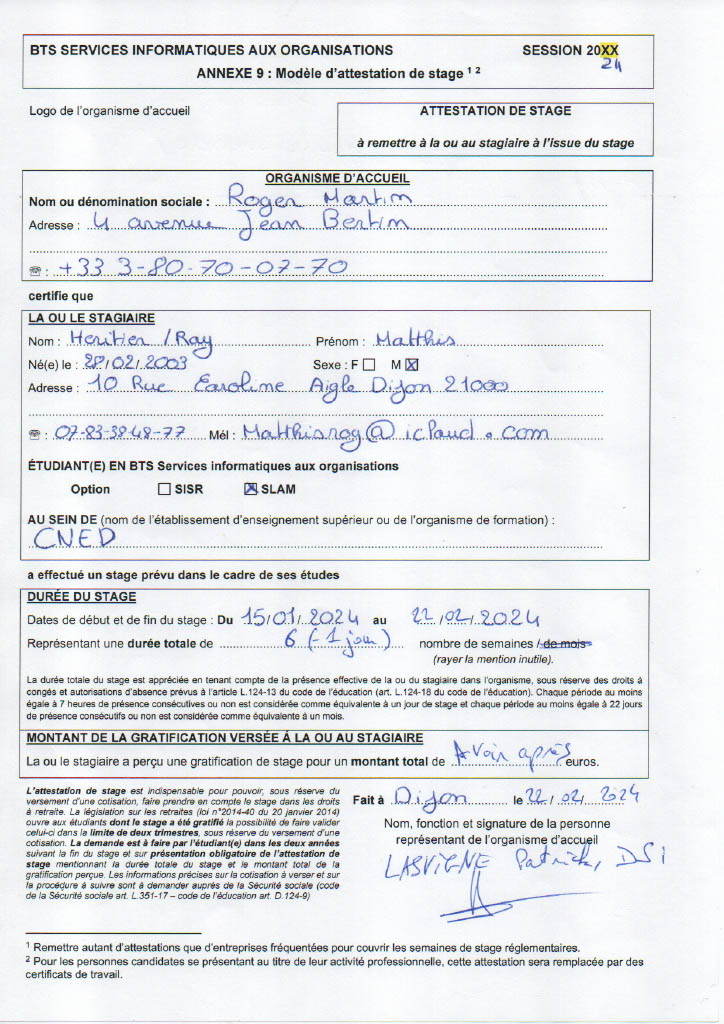 BTS SERVICES INFORMATIQUES AUX ORGANISATIONS SESSION 20XX
24
ANNEXE 9 : Modèle d'attestation de stage 1 2
Logo de l'organisme d'accueil
ATTESTATION DE STAGE
à remettre à la ou au stagiaire à l'issue du stage
ORGANISME D'ACCUEIL
Nom ou dénomination sociale : Roger Martin
Adresse : 4 avenue Jean Bertin
☎ : +33 3-80-70-07-70
certifie que
LA OU LE STAGIAIRE
Nom : Heritier / Ray Prénom : Matthis
Né(e) le : 28/02/2003 Sexe : F ☐ M ☒
Adresse : 10 Rue Caroline Aigle Dijon 21000
☎ : 07-83-38-48-77 Mél : Matthisray@icloud.com
ÉTUDIANT(E) EN BTS Services informatiques aux organisations
Option ☐ SISR ☒ SLAM
AU SEIN DE (nom de l'établissement d'enseignement supérieur ou de l'organisme de formation) :
CNED
a effectué un stage prévu dans le cadre de ses études
DURÉE DU STAGE
Dates de début et de fin du stage : Du 15/01/2024 au 22/02/2024
Représentant une durée totale de 6 (-1 jour) nombre de semaines / de mois
(rayer la mention inutile).
La durée totale du stage est appréciée en tenant compte de la présence effective de la ou du stagiaire dans l'organisme, sous réserve des droits à
congés et autorisations d'absence prévus à l'article L.124-13 du code de l'éducation (art. L.124-18 du code de l'éducation). Chaque période au moins
égale à 7 heures de présence consécutives ou non est considérée comme équivalente à un jour de stage et chaque période au moins égale à 22 jours
de présence consécutifs ou non est considérée comme équivalente à un mois.
MONTANT DE LA GRATIFICATION VERSÉE À LA OU AU STAGIAIRE
La ou le stagiaire a perçu une gratification de stage pour un montant total de A voir après euros.
L'attestation de stage est indispensable pour pouvoir, sous réserve du
versement d'une cotisation, faire prendre en compte le stage dans les droits
à retraite. La législation sur les retraites (loi n°2014-40 du 20 janvier 2014)
ouvre aux étudiants dont le stage a été gratifié la possibilité de faire valider
celui-ci dans la limite de deux trimestres, sous réserve du versement d'une
cotisation. La demande est à faire par l'étudiant(e) dans les deux années
suivant la fin du stage et sur présentation obligatoire de l'attestation de
stage mentionnant la durée totale du stage et le montant total de la
gratification perçue. Les informations précises sur la cotisation à verser et sur
la procédure à suivre sont à demander auprès de la Sécurité sociale (code
de la Sécurité sociale art. L.351-17 – code de l'éducation art. D.124-9)
Fait à Dijon le 22/02/2024
Nom, fonction et signature de la personne
représentant de l'organisme d'accueil
LASVIGNE Patrick, DSI
1 Remettre autant d'attestations que d'entreprises fréquentées pour couvrir les semaines de stage réglementaires.
2 Pour les personnes candidates se présentant au titre de leur activité professionnelle, cette attestation sera remplacée par des
certificats de travail.